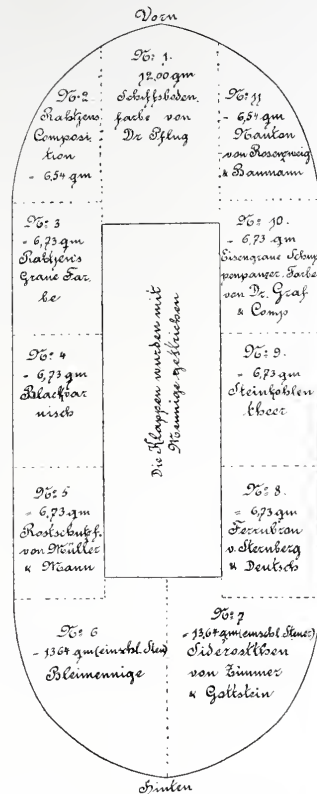 Vorn
No: 1.
12.00 qm
Schiffsboden.
farbe von
Dr Pflug
No. 2
Rahtjens
Composi,
tion
- 6,54 qm
No: 11
- 6,54 qm
Nauton
von Rosenzweig
& Baumann
No: 3
- 6,73 qm
Rahtjen's
Graue Far,
be
No: 10.
- 6,73 qm
Eisengraue Schup
penpanzer. Farbe
von Dr. Graf
& Comp
Die Klappen wurden mit
Mennige gestrichen
No: 4
- 6,73 qm
Blackvar
nisch
No: 9.
- 6,73 qm
Steinkohlen
theer
No: 5
= 6,73 qm
Rostschutzf.
von Müller
& Mann
No: 8.
= 6,73 qm
Ferrubron
v. Sternberg
& Deutsch
No: 6
- 13,64 qm (einschl. Steu)
Bleimennige
No: 7
- 13,64 qm (einschl. Steuer)
Siderosthen
von Zimmer
& Gottstein
Hinten